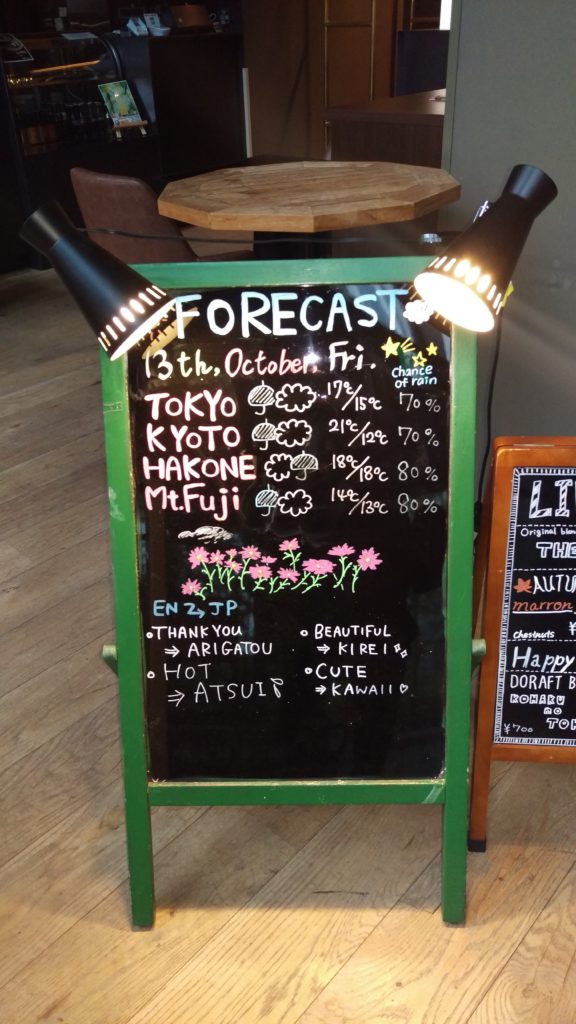 FORECAST
13th, October, Fri.
Chance of rain
TOKYO 17℃/15℃ 70%
KYOTO 21℃/12℃ 70%
HAKONE 18℃/18℃ 80%
Mt.Fuji 14℃/13℃ 80%
EN → JP
THANK YOU
⇒ ARIGATOU
HOT
⇒ ATSUI
BEAUTIFUL
⇒ KIREI
CUTE
⇒ KAWAII♡
Original
THE
marron
chestnuts ¥
Happy
DORAFT B
KOHAKU
no
¥700